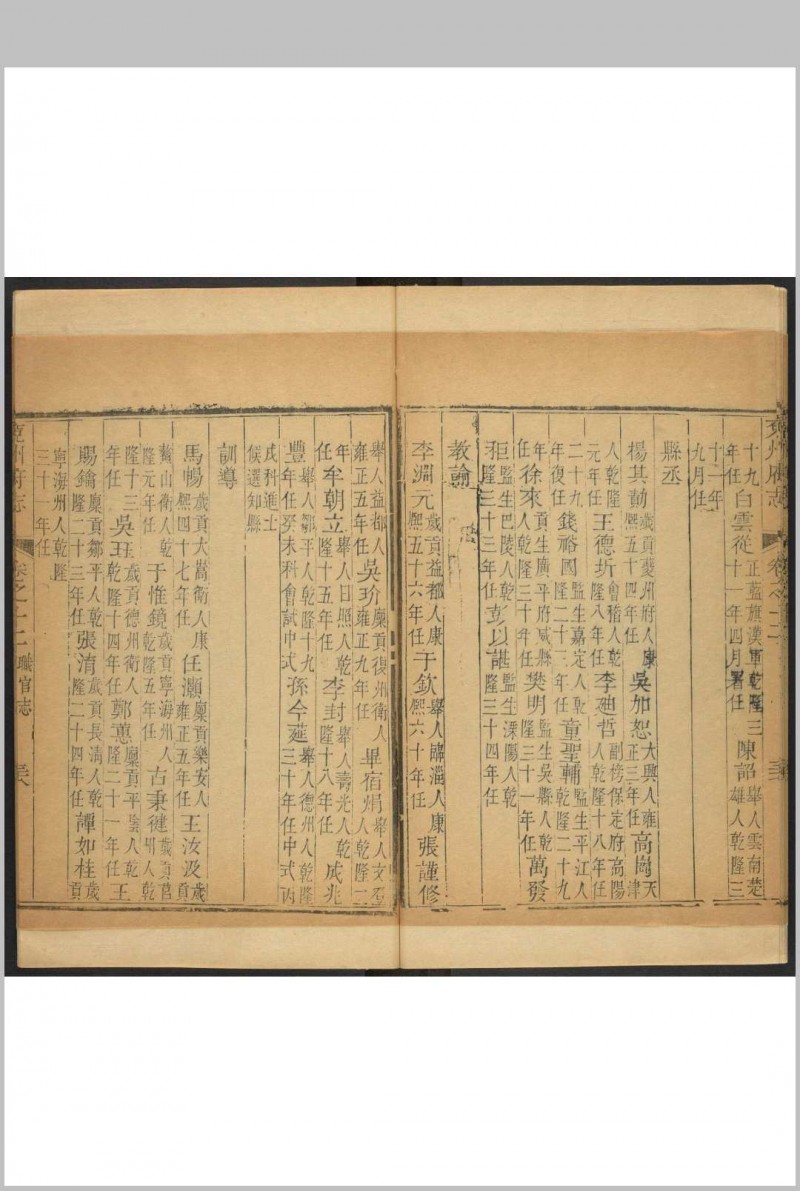 兗州府志
卷之十二
十九年任白雲從正藍旗漢軍乾隆三十一年四月署任陳詔舉人雲南楚雄人乾隆三
十一年九月任
縣丞
楊其勣歲貢夔州府人康熙五十四年任吳加恕大興人雍正三年任高崗天津
人乾隆元年任王德圻會稽人乾隆八年任李廸哲副榜保定府高陽人乾隆十八年任
二十九年復任錢裕國監生嘉定人乾隆二十三年任童聖輔監生平江人乾隆二十九
年任徐來貢生廣平府威縣人乾隆三十年任樊明監生吳縣人乾隆三十一年任萬發
秬監生巴陵人乾隆三十三年任彭以諶監生溧陽人乾隆三十四年任
教諭
李淵元歲貢益都人康熙五十六年任于欽舉人臨淄人康熙六十年任張謹修
舉人益都人雍正五年任吳玠廩貢復州衛人雍正九年任畢宿焆舉人文登人乾隆二
年任牟朝立舉人日照人乾隆十五年任李封舉人壽光人乾隆十八年任成兆
豐舉人鄒平人乾隆十九年任癸未科會試中式孫今莚舉人德州人乾隆三十年任中式丙
戌科進士候選知縣
訓導
馬暢歲貢大嵩衛人康熙四十七年任任灝廩貢樂安人雍正五年任王汝汲歲貢
鰲山衛人乾隆元年任于惟鏡歲貢寧海州人乾隆五年任古秉健歲貢莒州人乾
隆十三年任吳玨歲貢德州衛人乾隆十四年任郭蕙廩貢平陰人乾隆二十一年任王
賜鑰廩貢鄒平人乾隆二十三年任張淯歲貢長淸人乾隆二十四年任譚如桂歲貢
寧海州人乾隆三十一年任
兗州府志
卷之十二
職官志